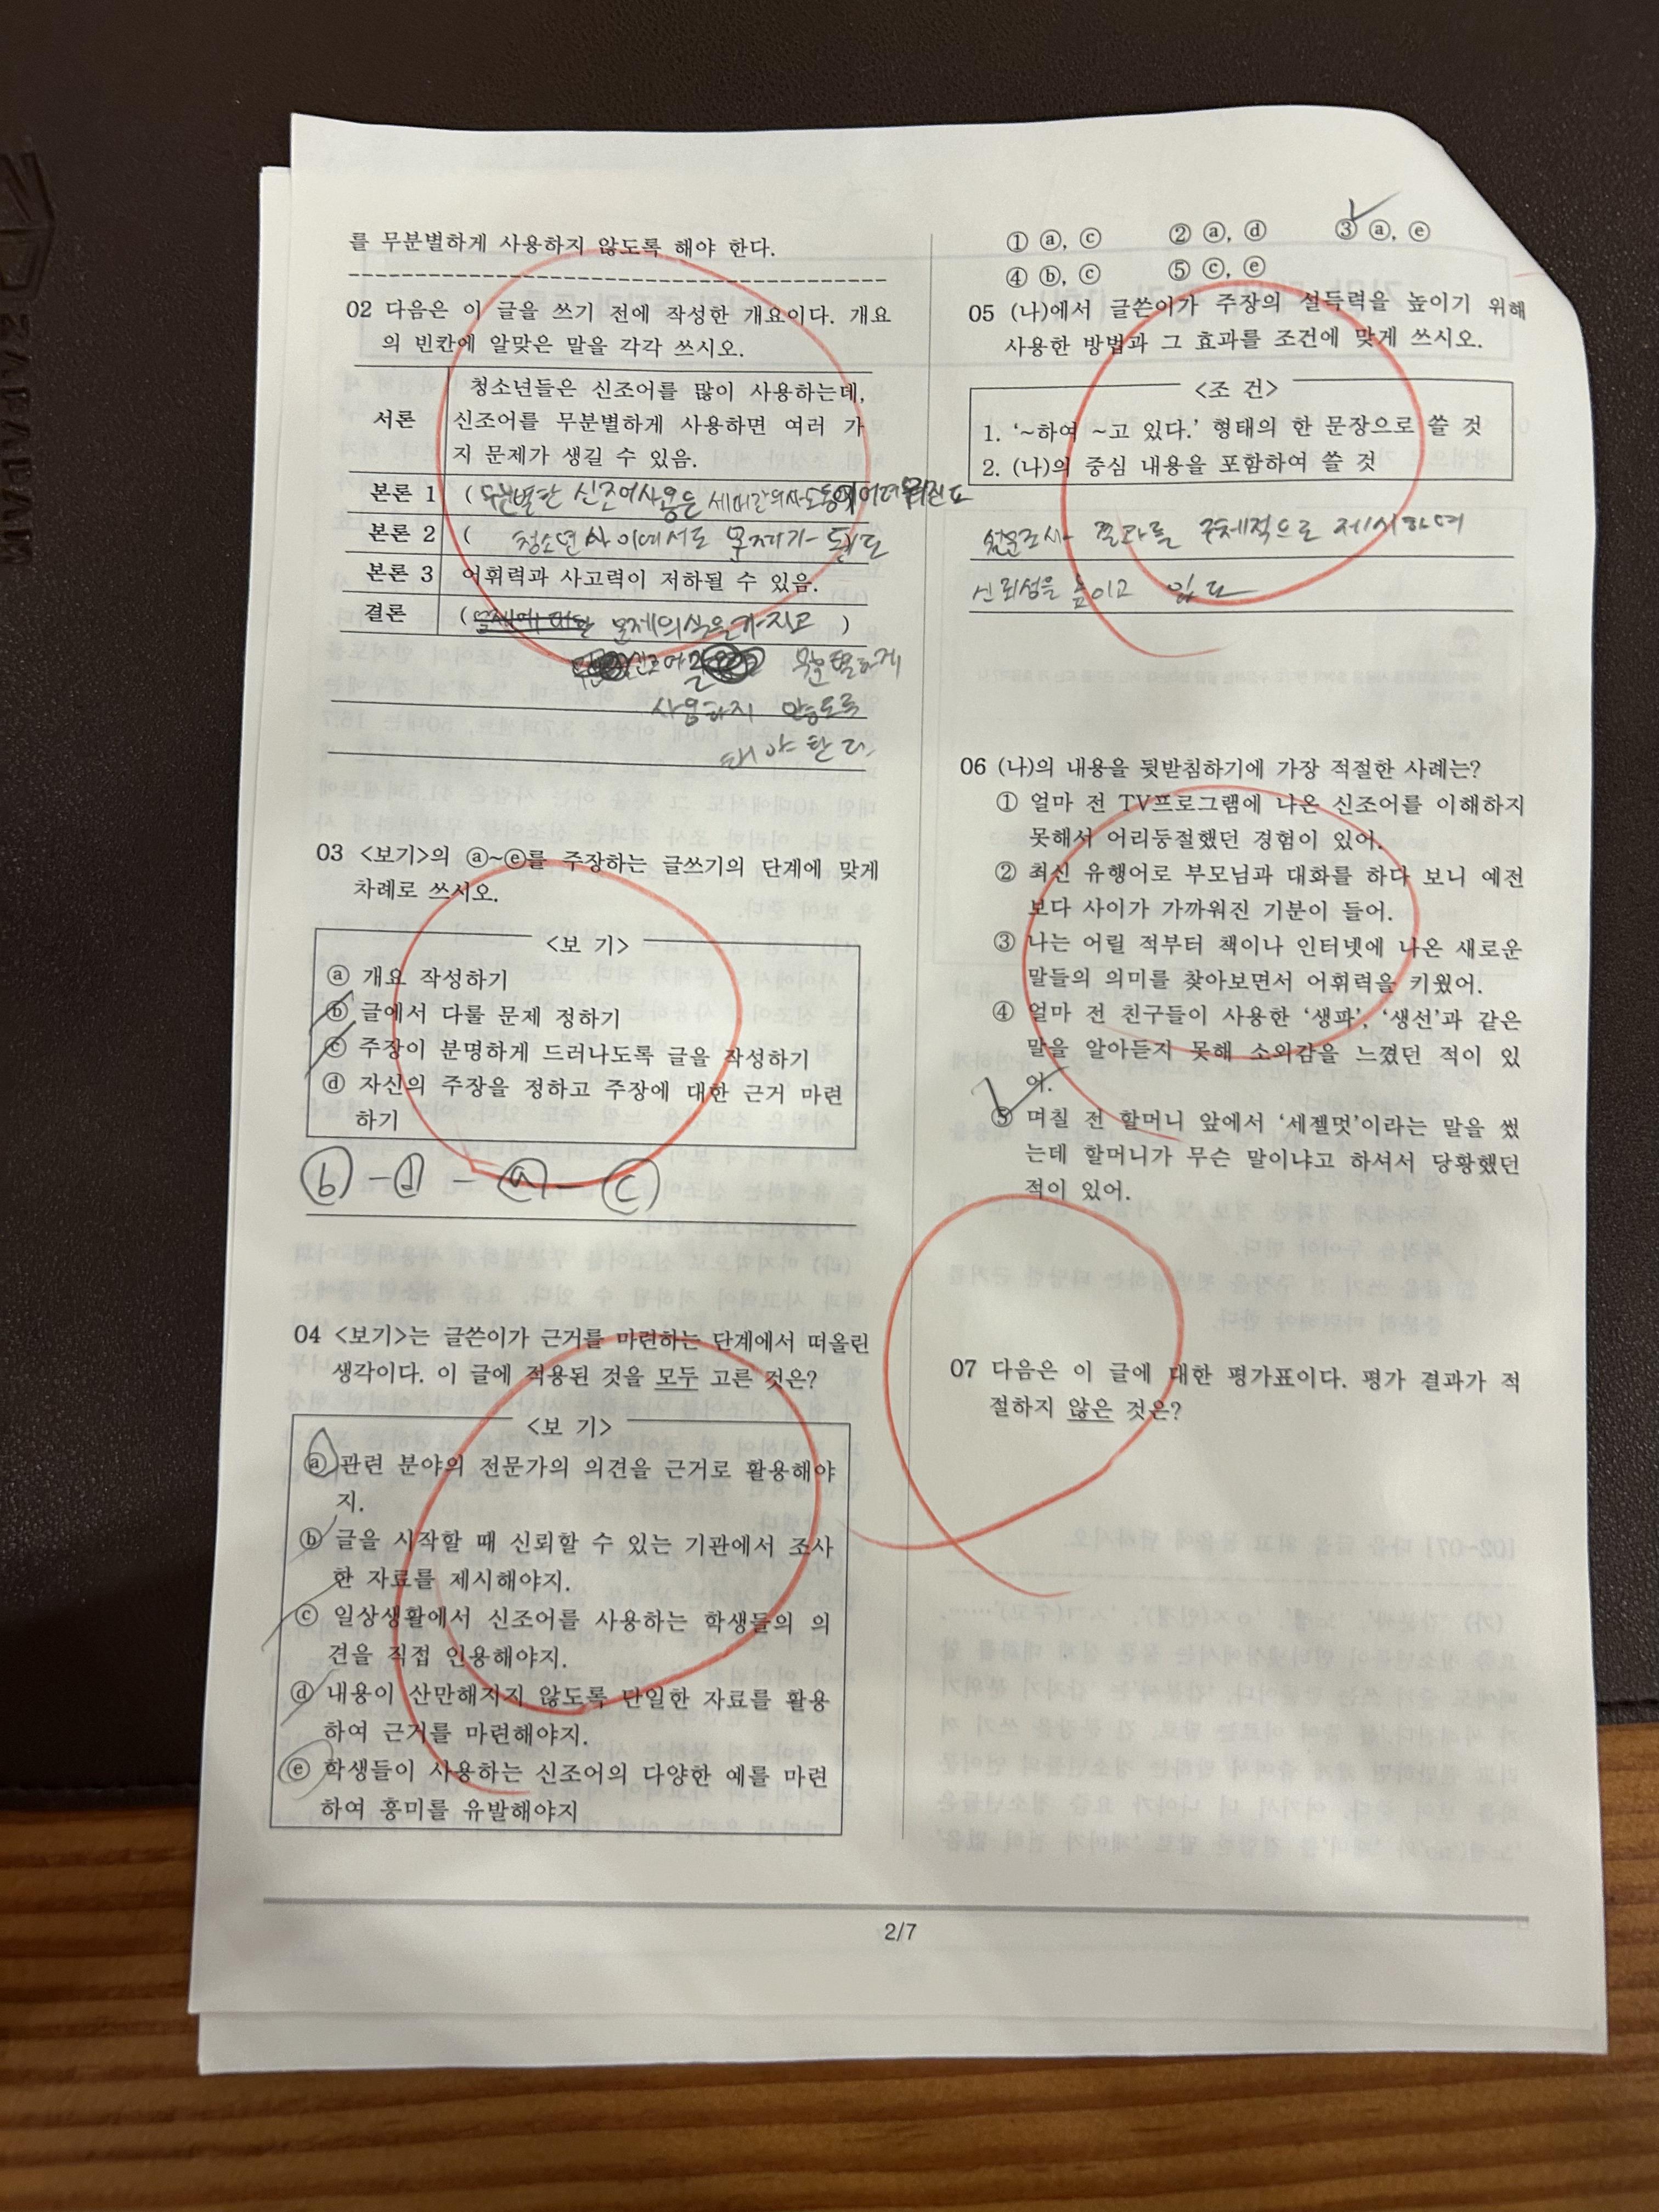 를 무분별하게 사용하지 않도록 해야 한다.
02 다음은 이 글을 쓰기 전에 작성한 개요이다. 개요
의 빈칸에 알맞은 말을 각각 쓰시오.
서론
청소년들은 신조어를 많이 사용하는데,
신조어를 무분별하게 사용하면 여러 가
지 문제가 생길 수 있음.
본론 1
( 무분별한 신조어사용은 세대간의
본론 2
( 청소년 사이에서도 문제가 된다
본론 3
어휘력과 사고력이 저하될 수 있음.
결론
( 문제의식을가지고 )
신조어 무분별하게
사용하지 않도록
해야 한다.
03 <보기>의 ⓐ~ⓔ를 주장하는 글쓰기의 단계에 맞게
차례로 쓰시오.
<보 기>
ⓐ 개요 작성하기
ⓑ 글에서 다룰 문제 정하기
ⓒ 주장이 분명하게 드러나도록 글을 작성하기
ⓓ 자신의 주장을 정하고 주장에 대한 근거 마련
하기
ⓑ - ⓓ - ⓐ - ⓒ
04 <보기>는 글쓴이가 근거를 마련하는 단계에서 떠올린
생각이다. 이 글에 적용된 것을 모두 고른 것은?
<보 기>
ⓐ 관련 분야의 전문가의 의견을 근거로 활용해야
지.
ⓑ 글을 시작할 때 신뢰할 수 있는 기관에서 조사
한 자료를 제시해야지.
ⓒ 일상생활에서 신조어를 사용하는 학생들의 의
견을 직접 인용해야지.
ⓓ 내용이 산만해지지 않도록 단일한 자료를 활용
하여 근거를 마련해야지.
ⓔ 학생들이 사용하는 신조어의 다양한 예를 마련
하여 흥미를 유발해야지
① ⓐ, ⓒ ② ⓐ, ⓓ ③ ⓐ, ⓔ
④ ⓑ, ⓒ ⑤ ⓒ, ⓔ
05 (나)에서 글쓴이가 주장의 설득력을 높이기 위해
사용한 방법과 그 효과를 조건에 맞게 쓰시오.
<조 건>
1. '~하여 ~고 있다.' 형태의 한 문장으로 쓸 것
2. (나)의 중심 내용을 포함하여 쓸 것
설문조사 결과를 구체적으로 제시하며
신뢰성을 높이고 있다
06 (나)의 내용을 뒷받침하기에 가장 적절한 사례는?
① 얼마 전 TV프로그램에 나온 신조어를 이해하지
못해서 어리둥절했던 경험이 있어.
② 최신 유행어로 부모님과 대화를 하다 보니 예전
보다 사이가 가까워진 기분이 들어.
③ 나는 어릴 적부터 책이나 인터넷에 나온 새로운
말들의 의미를 찾아보면서 어휘력을 키웠어.
④ 얼마 전 친구들이 사용한 '생파', '생선'과 같은
말을 알아듣지 못해 소외감을 느꼈던 적이 있
어.
⑤ 며칠 전 할머니 앞에서 '세젤멋'이라는 말을 썼
는데 할머니가 무슨 말이냐고 하셔서 당황했던
적이 있어.
07 다음은 이 글에 대한 평가표이다. 평가 결과가 적
절하지 않은 것은?
2/7